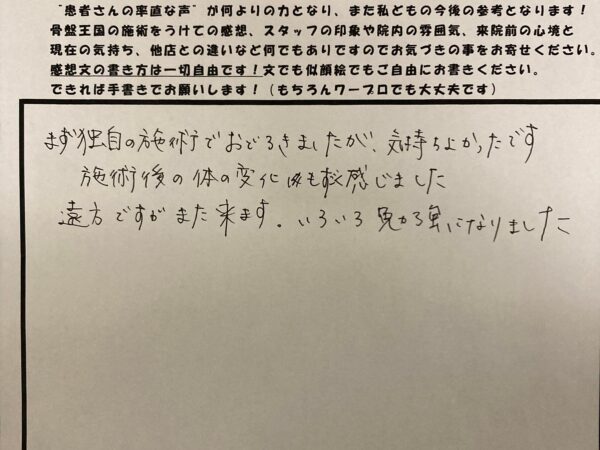 “患者さんの率直な声”が何よりの力となり、また私どもの今後の参考となります！
骨盤王国の施術をうけての感想、スタッフの印象や院内の雰囲気、来院前の心境と
現在の気持ち、他店との違いなど何でもありですのでお気づきの事をお寄せください。
感想文の書き方は一切自由です！文でも似顔絵でもご自由にお書きください。
できれば手書きでお願いします！（もちろんワープロでも大丈夫です）
まず独自の施術でおどろきましたが、気持ちよかったです
施術後の体の変化 感じました
遠方ですがまた来ます。いろいろ勉強になりました